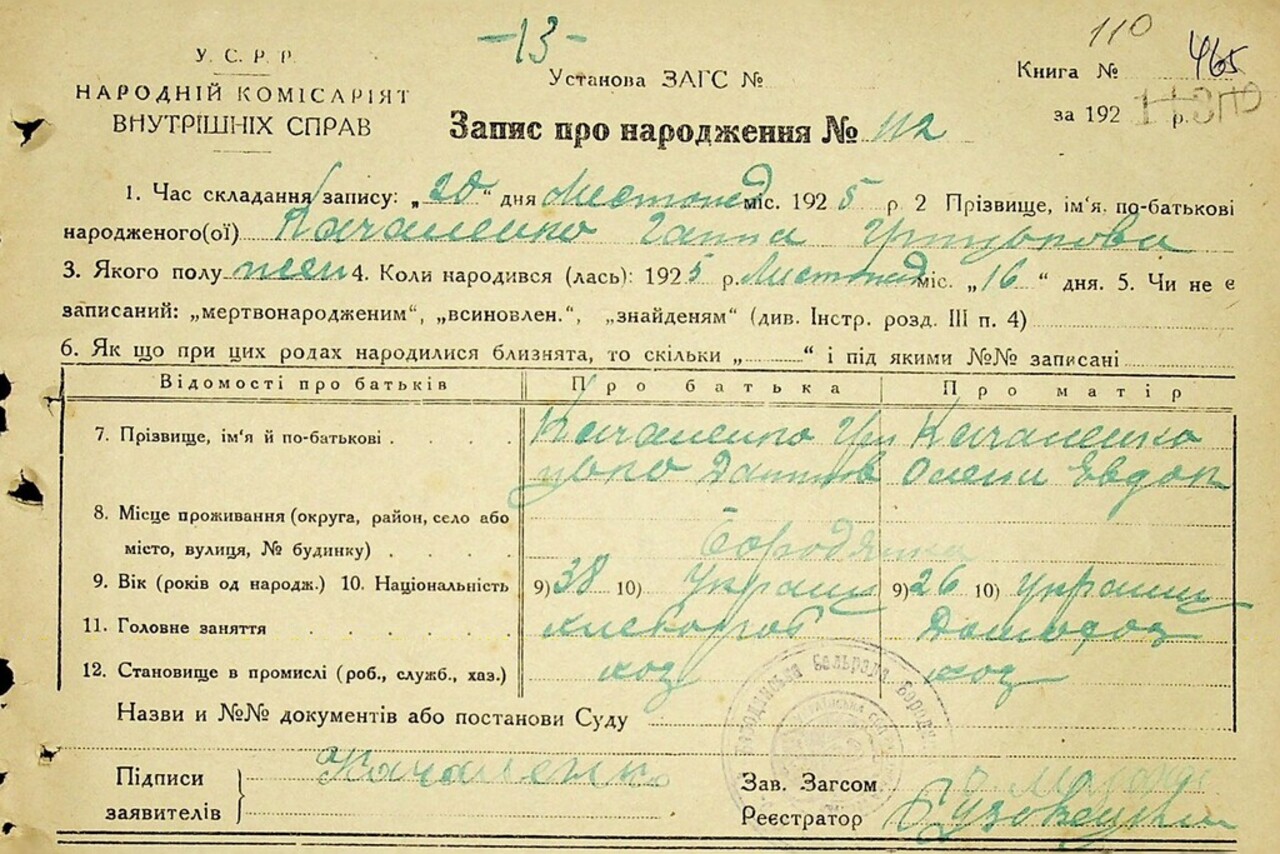 -13-
110
465
У. С. Р. Р.
НАРОДНІЙ КОМІСАРІЯТ
ВНУТРІШНІХ СПРАВ
Установа ЗАГС №
Книга №
за 192 р.
Запис про народження № 112
1. Час складання запису: „20“ дня Листопад міс. 1925 р 2 Прізвище, ім'я, по-батькові
народженого(ої) Качаненко Ганна
3. Якого полу жен 4. Коли народився (лась): 1925 р. Листопад міс. „16“ дня. 5. Чи не є
записаний: „мертвонародженим“, „всиновлен.“, „знайденям“ (див. Інстр. розд. III п. 4)
6. Як що при цих родах народилися близнята, то скільки „ “ і під якими №№ записані
Відомості про батьків Про батька Про матір
7. Прізвище, ім'я й по-батькові . . . . Качаненко Гри Качаненко
цько Данилов Олена Евдок
8. Місце проживання (округа, район, село або
місто, вулиця, № будинку) . . . . Бородянка
9. Вік (років од народж.) 10. Національність 9) 38 10) Украин 9) 26 10) Украин
11. Головне заняття . . . . . хлебороб Домохоз
12. Становище в промислі (роб., служб., хаз.) хоз хоз
Назви и №№ документів або постанови Суду
Підписи
заявителів
Качаненко
Зав. Загсом
Реєстратор